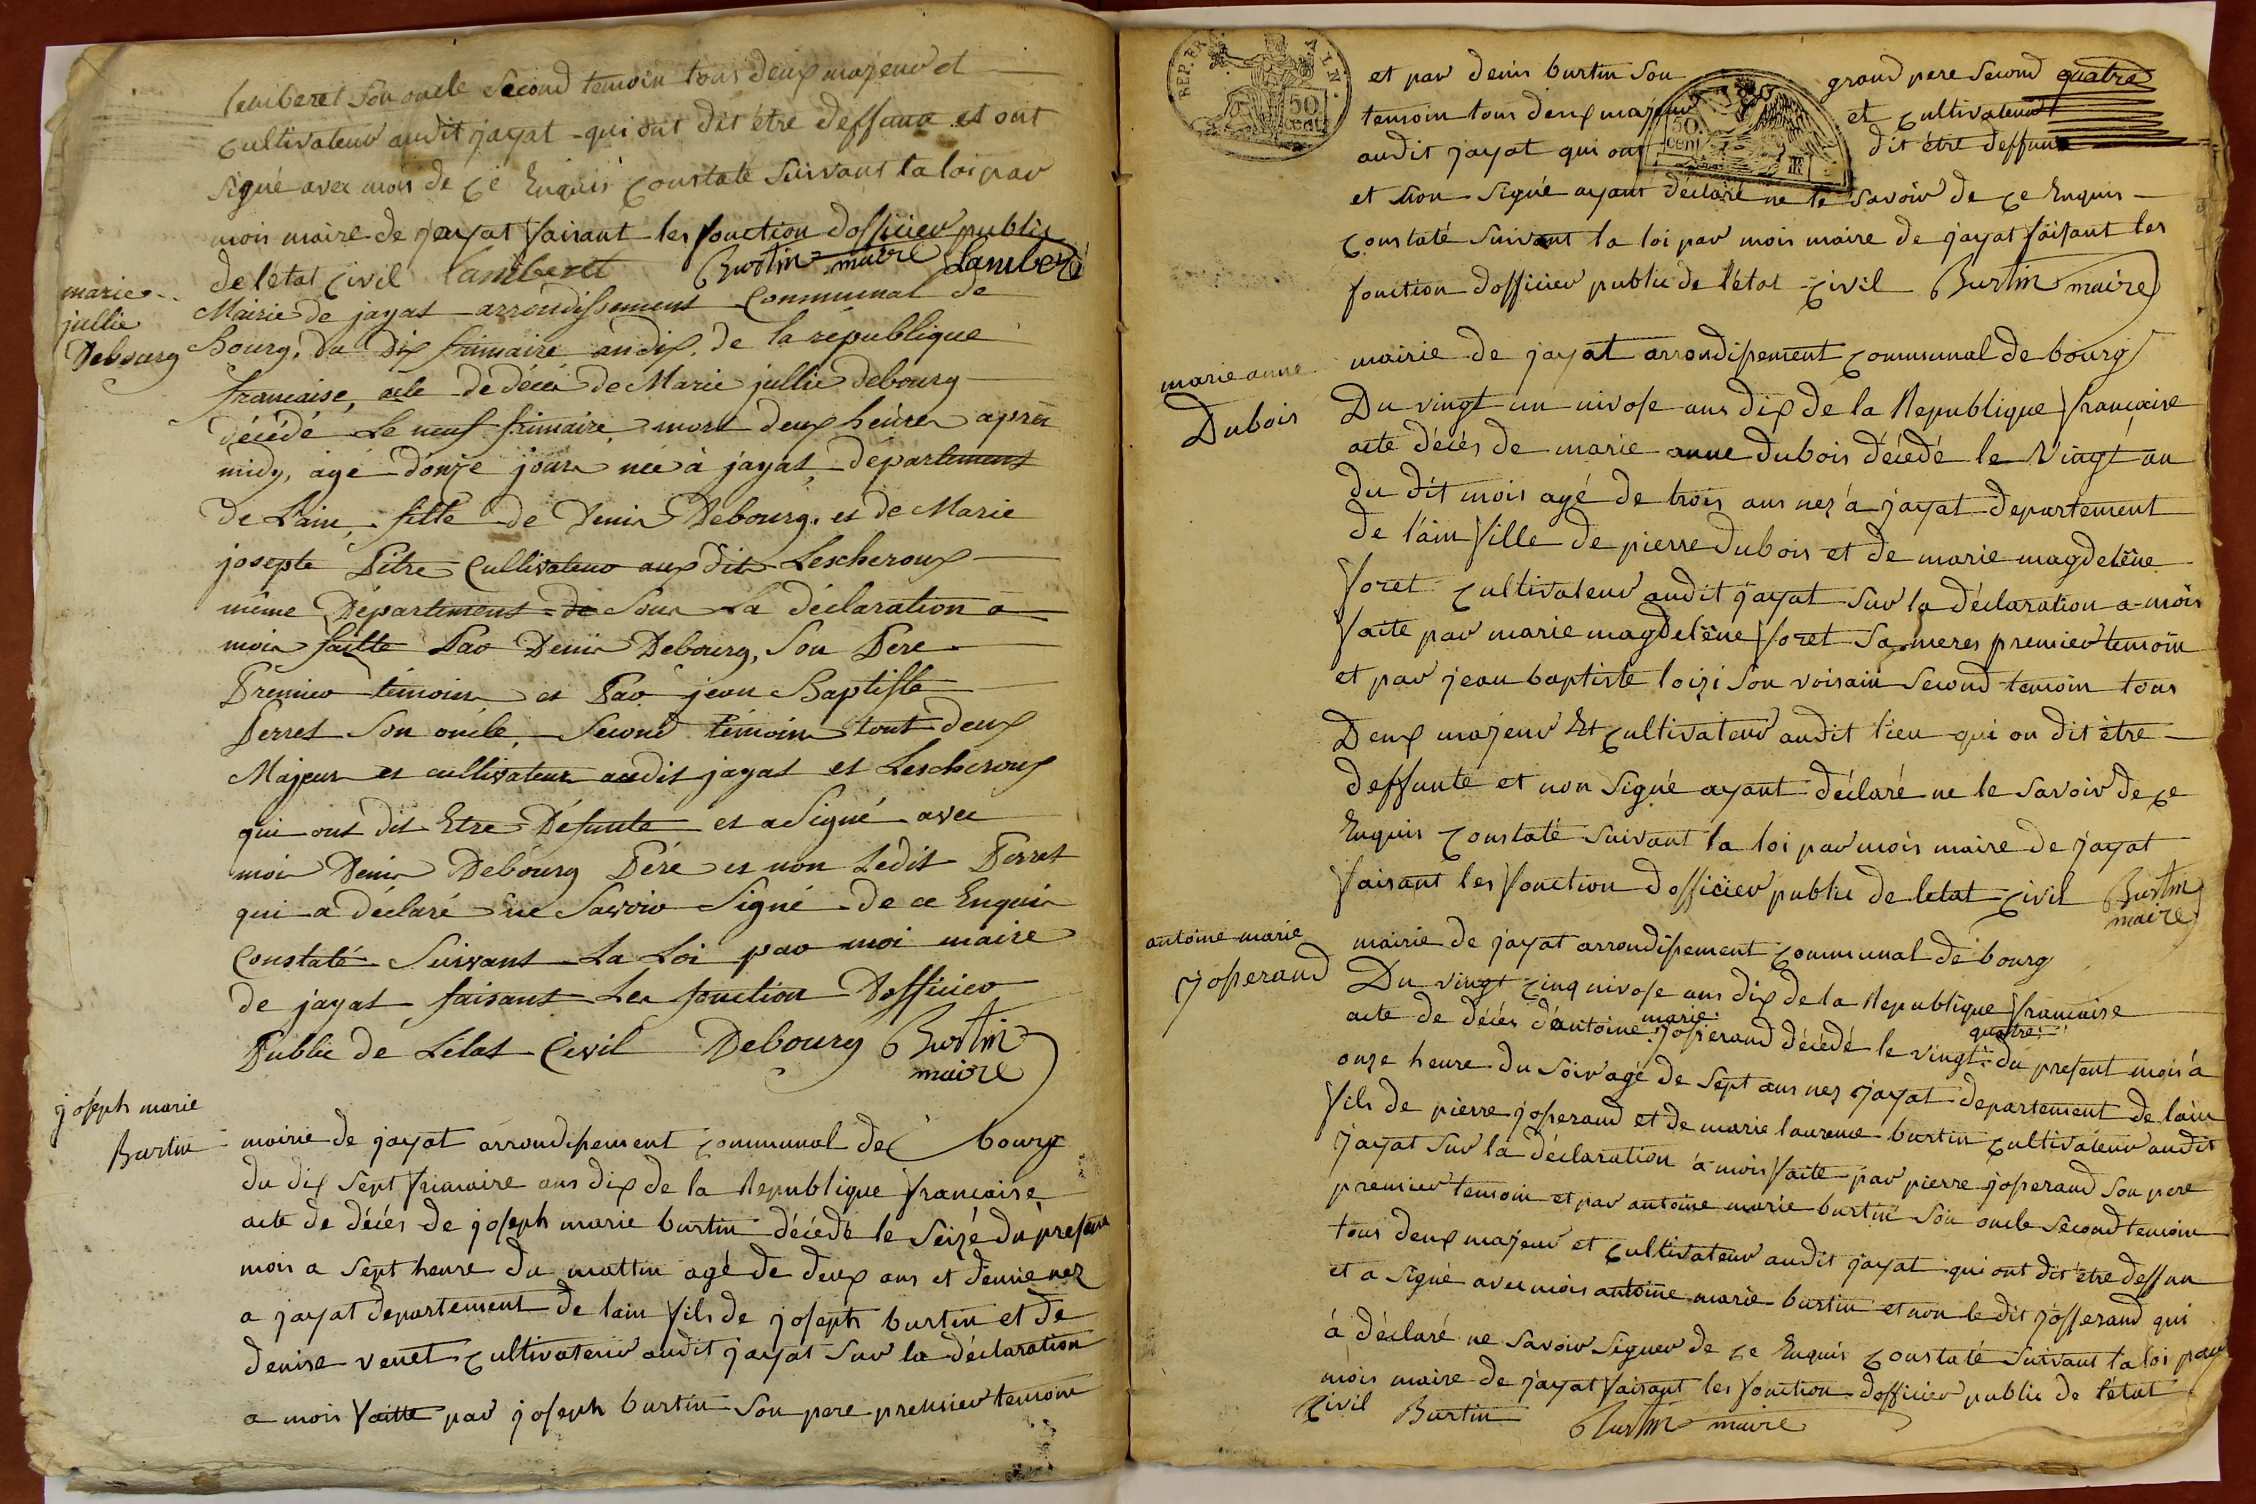 lemberet son oncle second temoin tous deux majeur et
cultivateur audit jayat qui ont dit être deffunt et ont
signé avec mois de ce Enquis constaté suivant la loi par
mois maire de jayat faisant les fonction dofficier public
de létat civil lambert Burtin maire Lambert
marie
jullie
Debourg
Mairie de jayat arrondissement Communal de
Bourg. du dix frimaire an dix. de la république
francaise, acte de décés de Marie jullie debourg
décédé Le neuf frimaire mort deux heures aprés
midy, agé d'onze jours née à jayat, département
de L'ain, fille de Denis Debourg. et de Marie
josepte Pitre Cultivateur aux dit Lescheroux
même Département de Sous La déclaration a
mois faitte Par Denis Debourg, Son Pere
Premier témoins et Par jean Baptiste
Perret Son oncle, Second témoin tout deux
Majeur et cultivateur audit jayat et Lescheroux
qui ont dit Etre Défunte et a Signé avec
moi Denis Debourg Pére et non Ledit Perret
qui a déclaré ne Savoir Signé de ce Enquis
Constaté Suivant La Loi par moi maire
de jayat faisant Les fonction Dofficier
Public de Létat Civil Debourg Burtin
maire
joseph marie
Burtin
mairie de jayat arrondissement communal de bourg
du dix sept frimaire ans dix de la Republique francaise
acte de décés de joseph marie burtin décédé le Seizé du présent
mois a sept heure du mattin agé de deux ans et demie nez
a jayat departement de lain fils de joseph burtin et de
denise venet cultivateur audit jayat sur la déclaration
a mois faitte par joseph burtin son pere premier temoin
REP. FRA. 50 cent
50. cent
et par denis burtin son grand pere second quatre
temoin tous deux majeur et cultivateur
audit jayat qui ont dit être deffunt
et non signé ayant déclaré ne le savoir de ce Enquis
constaté suivant la loi par mois maire de jayat faisant les
fonction dofficier public de létat civil Burtin maire
marie anne
Dubois
mairie de jayat arrondissement communal de bourg
Du vingt un nivose ans dix de la Republique francaise
acte décés de marie anne dubois décédé le Vingt un
du dit mois agé de trois ans nez á jayat departement
de láin fille de pierre dubois et de marie magdeléne
foret cultivateur audit jayat sur la déclaration a mois
faite par marie magdeléne foret sa meres premier temoin
et par jean baptiste loizi son voisain second temoin tous
Deux majeur Et cultivateur audit lieu qui on dit être
deffunte et non signé ayant déclaré ne le savoir de ce
Enquis constaté suivant la loi par mois maire de jayat
faisant les fonction dofficier public de letat civil Burtin
maire
antoine marie
josserand
mairie de jayat arrondissement communal de bourg
Du vingt cinq nivose ans dix de la Republique francaise
acte de décés dántoine marie josserand décédé le vingt quatre du present mois á
onze heure du soir agé de sept ans nez jayat departement de lain
fils de pierre josserand et de marie laurence burtin cultivateur audit
jayat sur la déclaration á mois faite par pierre josserand son pere
premier temoin et par antoine marie burtin son oncle second temoin
tous deux majeur et cultivateur audit jayat qui ont dit être deffun
et a signé avec mois antoine marie burtin et non le dit josserand qui
á déclaré ne savoir signer de ce Enquis constaté suivant la loi par
mois maire de jayat faisant les fonction dofficier public de létat
civil Burtin Burtin maire